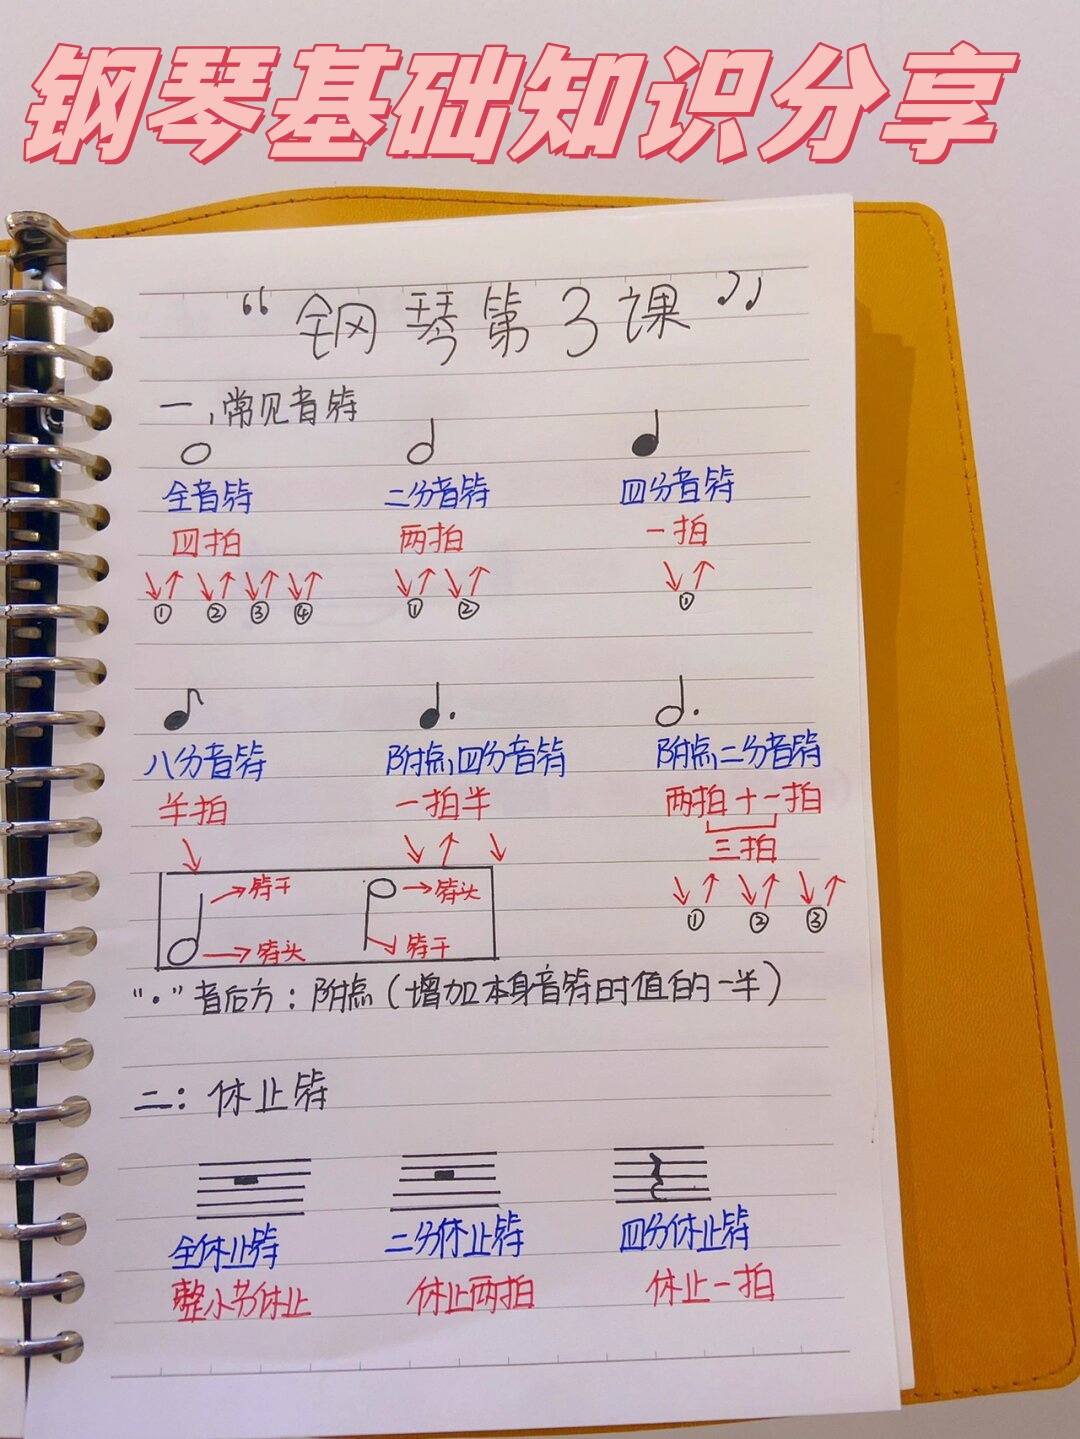 钢琴基础知识分享
“钢琴第3课”
一、常见音符
全音符 二分音符 四分音符
四拍 两拍 一拍
① ② ③ ④ ① ② ①
八分音符 附点四分音符 附点二分音符
半拍 一拍半 两拍+一拍
三拍
① ② ③
符干 符头
符头 符干
“·”音后方：附点（增加本身音符时值的一半）
二：休止符
全休止符 二分休止符 四分休止符
整小节休止 休止两拍 休止一拍